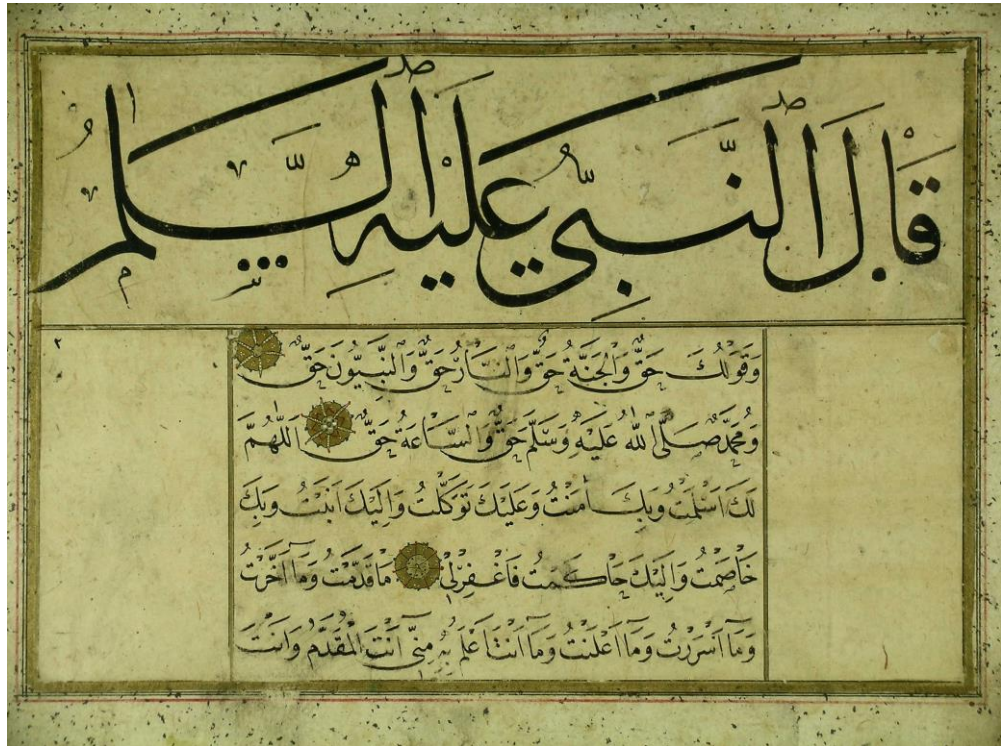 قَالَ النَّبِيُّ عَلَيْهِ السَّلَامُ
وَقَوْلُكَ حَقٌّ وَالْجَنَّةُ حَقٌّ وَالنَّارُ حَقٌّ وَالنَّبِيُّونَ حَقٌّ
وَمُحَمَّدٌ صَلَّى اللهُ عَلَيْهِ وَسَلَّمَ حَقٌّ وَالسَّاعَةُ حَقٌّ اَللّٰهُمَّ
لَكَ اَسْلَمْتُ وَبِكَ اٰمَنْتُ وَعَلَيْكَ تَوَكَّلْتُ وَاِلَيْكَ اَنَبْتُ وَبِكَ
خَاصَمْتُ وَاِلَيْكَ حَاكَمْتُ فَاغْفِرْلِىْ مَاقَدَّمْتُ وَمَآ اَخَّرْتُ
وَمَآ اَسْرَرْتُ وَمَآ اَعْلَنْتُ وَمَآ اَنْتَ اَعْلَمُ بِهِ مِنِّى اَنْتَ الْمُقَدِّمُ وَاَنْتَ
٢